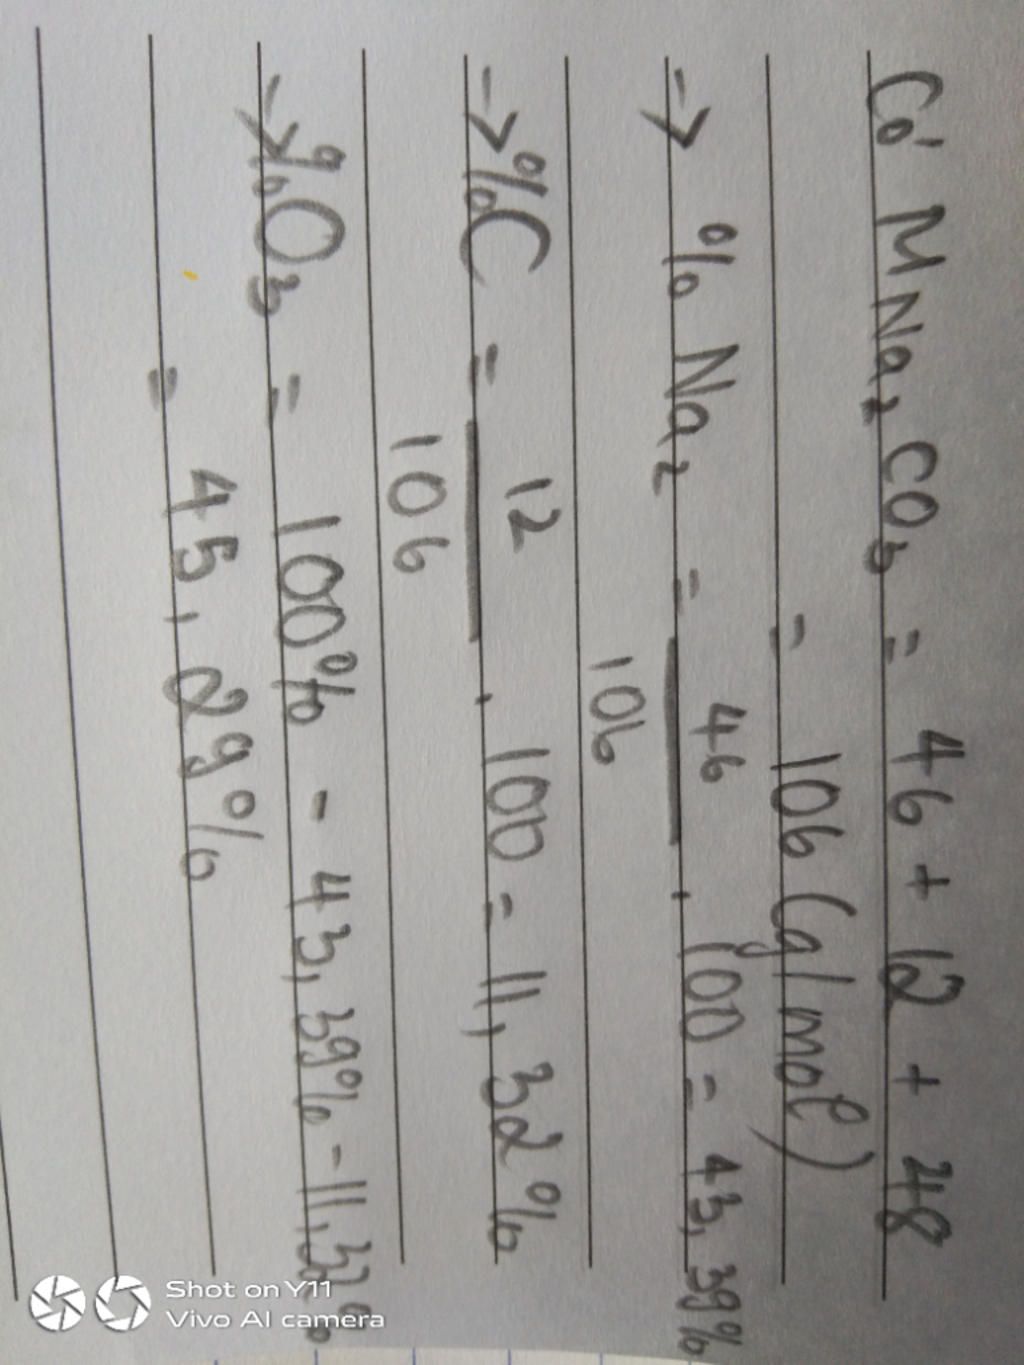 Có M Na₂CO₃ = 46 + 12 + 48
= 106 (g/mol)
→ % Na₂ = 46/106 . 100 = 43,39%
→ %C = 12/106 . 100 = 11,32%
→ %O₃ = 100% - 43,39% - 11,32%
= 45,29%
Shot on Y11
Vivo AI camera